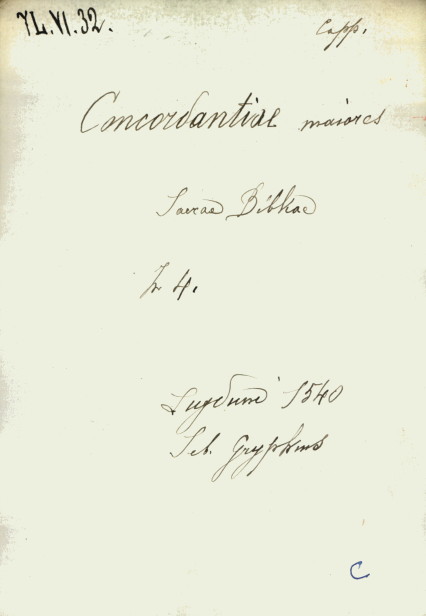 7L.VI.32.
Capp.
Concordantiae maiores
Sacrae Bibliae
in 4.
Lugduni 1540
Seb. Gryphius
C